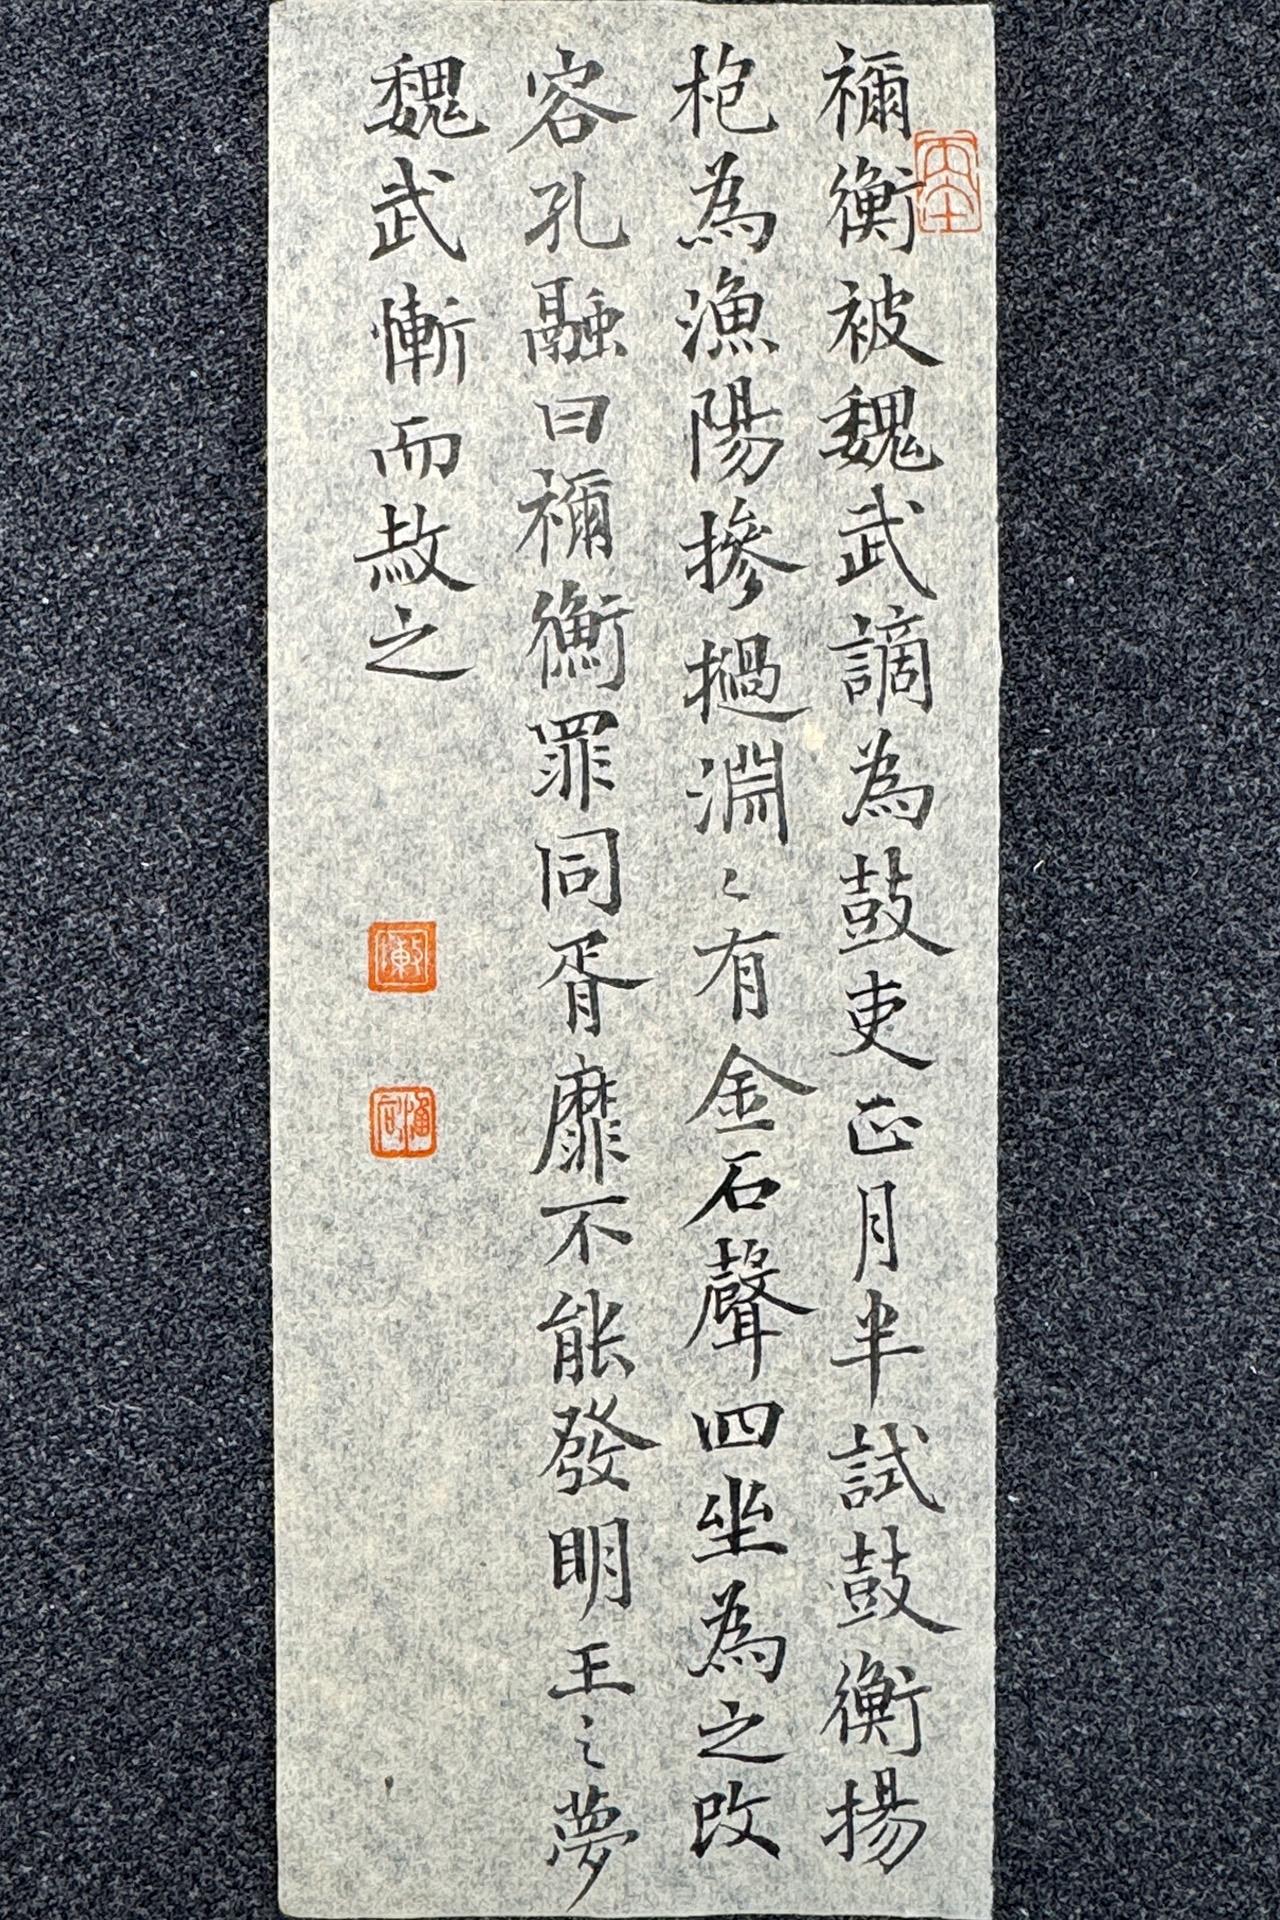 禰衡被魏武謫為鼓吏正月半試鼓衡揚
枹為漁陽摻撾淵〻有金石聲四坐為之改
容孔融曰禰衡罪同胥靡不能發明王之夢
魏武慚而赦之